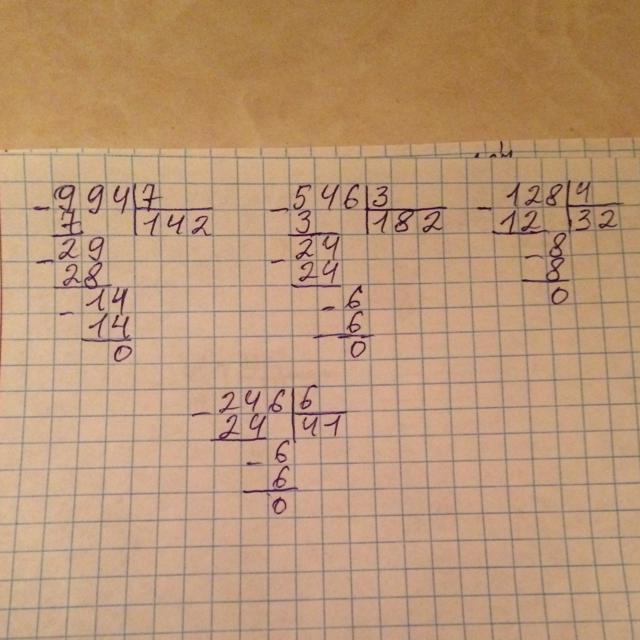 - 994 | 7
7 | 142
- 29
28
- 14
14
0
- 546 | 3
3 | 182
- 24
24
- 6
6
0
- 128 | 4
12 | 32
- 8
8
0
- 246 | 6
24 | 41
- 6
6
0